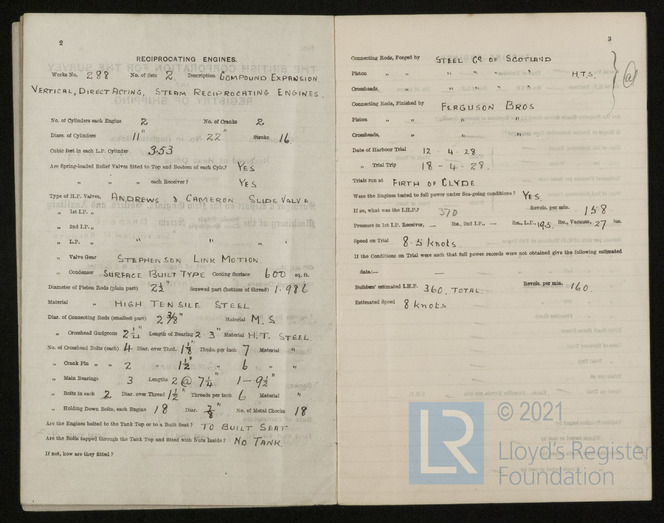 2
RECIPROCATING ENGINES.
Works No. 288 No. of Sets 2 Description COMPOUND EXPANSION
VERTICAL, DIRECT ACTING, STEAM RECIPROCATING ENGINES.
No. of Cylinders each Engine 2 No. of Cranks 2
Diars. of Cylinders 11" 22" Stroke 16
Cubic feet in each L.P. Cylinder 3.53
Are Spring-loaded Relief Valves fitted to Top and Bottom of each Cylr.? YES
" " " each Receiver? YES
Type of H.P. Valves, ANDREWS & CAMERON SLIDE VALVE
" 1st I.P. "
" 2nd I.P. "
" L.P. " " " "
" Valve Gear STEPHENSON LINK MOTION
" Condenser SURFACE BUILT TYPE Cooling Surface 600 sq. ft.
Diameter of Piston Rods (plain part) 2½" Screwed part (bottom of thread) 1.986
Material HIGH TENSILE STEEL
Diar. of Connecting Rods (smallest part) 2⅜" Material M.S
" Crosshead Gudgeons Length of Bearing Material H.T. STEEL
No. of Crosshead Bolts (each) 4 Diar. over Thrd. 1⅛" Thrds. per inch 7 Material "
" Crank Pin " " 2 " 1½" " 6 " "
" Main Bearings 3 Lengths 2 @ 7¼" 1 - 9½"
" Bolts in each 2 Diar. over Thread 1½" Threads per inch 6 Material "
" Holding Down Bolts, each Engine 18 Diar. ⅞" No. of Metal Chocks 18
Are the Engines bolted to the Tank Top or to a Built Seat? TO BUILT SEAT
Are the Bolts tapped through the Tank Top and fitted with Nuts Inside? NO TANK
If not, how are they fitted?
3
Connecting Rods, Forged by STEEL Co OF SCOTLAND
Piston " " " " " H.T.S.
Crossheads, " " " " "
Connecting Rods, Finished by FERGUSON BROS
Piston " " " "
Crossheads, " " " "
Date of Harbour Trial 12 - 4 - 28
" Trial Trip 18 - 4 - 28.
Trials run at FIRTH OF CLYDE
Were the Engines tested to full power under Sea-going conditions? YES.
If so, what was the I.H.P.? 370 Revols. per min. 158
Pressure in 1st I.P. Receiver, — lbs., 2nd I.P., — lbs., L.P., 19.5 lbs., Vacuum, 27 ins.
Speed on Trial 8.5 knots.
If the Conditions on Trial were such that full power records were not obtained give the following estimated
data:—
Builders' estimated I.H.P. 360, TOTAL Revols. per min. 160
Estimated Speed 8 knots
LR © 2021
Lloyd's Register
Foundation